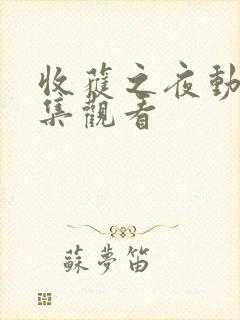 收穫之夜動
集觀看
蘇夢笛